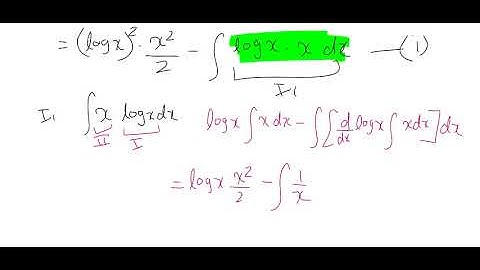 = (log x)² · x²/2 − ∫ log x · x dx —(1)
I₁
I₁ ∫ x log x dx log x ∫ x dx − ∫ [ d/dx log x ∫ x dx ] dx
II I
= log x x²/2 − ∫ 1/x